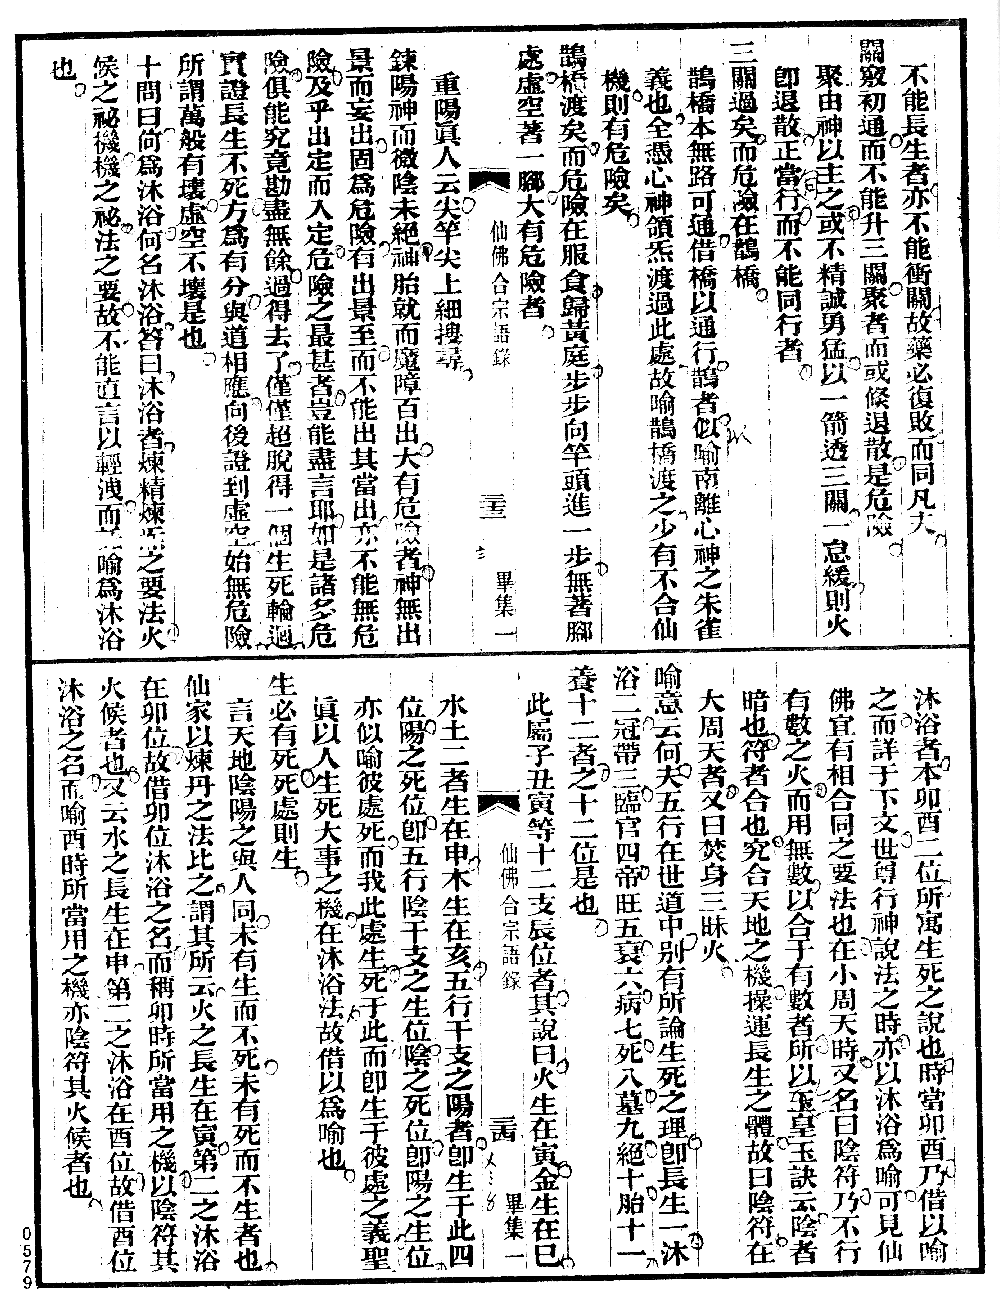 不能長生者亦不能衝關故藥必復敗而同凡夫
關竅初通而不能升三關聚者而或倏退散是危險
聚由神以主之或不精誠勇猛以一箭透三關一怠緩則火
卽退散正當行而不能同行者
三關過矣而危險在鵲橋
鵲橋本無路可通借橋以通行鵲者似喻南離心神之朱雀
義也全憑心神領炁渡過此處故喻鵲橋渡之少有不合仙
機則有危險矣
鵲橋渡矣而危險在服食歸黃庭步步向竿頭進一步無著腳
處虛空著一腳大有危險者
仙佛合宗語錄 三三 畢集一
重陽眞人云尖竿尖上細搜尋
鍊陽神而微陰未絕神胎就而魔障百出大有危險者神無出
景而妄出固爲危險有出景至而不能出其當出亦不能無危
險及乎出定而入定危險之最甚者豈能盡言耶如是諸多危
險俱能究竟勘盡無餘過得去了僅僅超脫得一個生死輪迴
實證長生不死方爲有分與道相應向後證到虛空始無危險
所謂萬般有壞虛空不壞是也
十問曰何爲沐浴何名沐浴答曰沐浴者煉精煉炁之要法火
候之祕機機之祕法之要故不能直言以輕洩而喻爲沐浴
也
沐浴者本卯酉二位所寓生死之說也時當卯酉乃借以喻
之而詳于下文世尊行神說法之時亦以沐浴爲喻可見仙
佛宜有相合同之要法也在小周天時又名曰陰符乃不行
有數之火而用無數以合于有數者所以玉皇玉訣云陰者
暗也符者合也究合天地之機操運長生之體故曰陰符在
大周天者又曰焚身三昧火
喻意云何夫五行在世道中别有所論生死之理卽長生一沐
浴二冠帶三臨官四帝旺五衰六病七死八墓九絕十胎十一
養十二者之十二位是也
此屬子丑寅等十二支辰位者其說曰火生在寅金生在巳
仙佛合宗語錄 三四 畢集一
水土二者生在申木生在亥五行干支之陽者卽生于此四
位陽之死位卽五行陰干支之生位陰之死位卽陽之生位
亦似喻彼處死而我此處生死于此而卽生于彼處之義聖
眞以人生死大事之機在沐浴法故借以爲喻也
生必有死死處則生
言天地陰陽之與人同未有生而不死未有死而不生者也
仙家以煉丹之法比之謂其所云火之長生在寅第二之沐浴
在卯位故借卯位沐浴之名而稱卯時所當用之機以陰符其
火候者也又云水之長生在申第二之沐浴在酉位故借酉位
沐浴之名而喻酉時所當用之機亦陰符其火候者也
0579